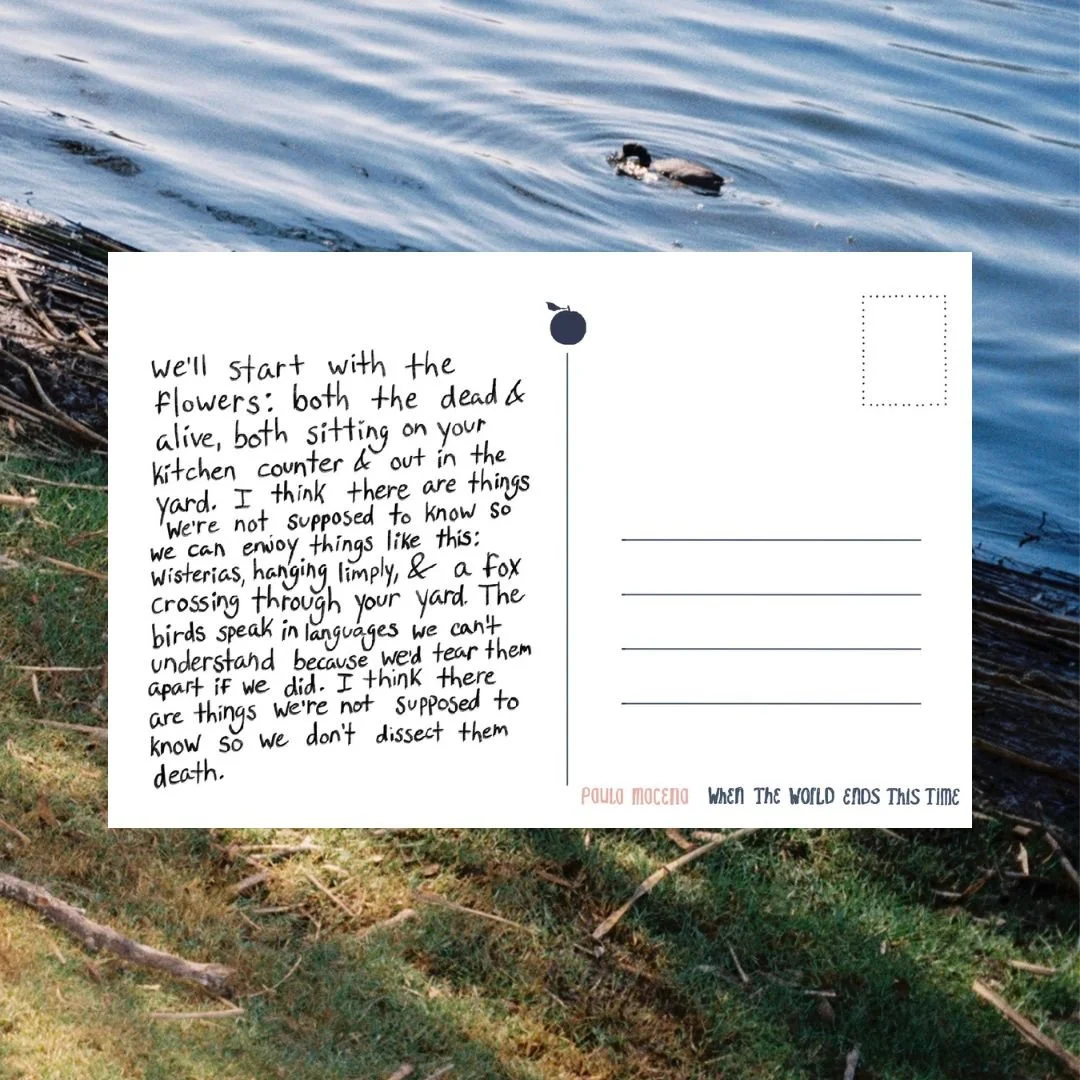 we'll start with the
flowers: both the dead &
alive, both sitting on your
kitchen counter & out in the
yard. I think there are things
we're not supposed to know so
we can enjoy things like this:
wisterias, hanging limply, & a fox
crossing through your yard. The
birds speak in languages we can't
understand because we'd tear them
apart if we did. I think there
are things we're not supposed to
know so we don't dissect them
death.
Paula Macena WHEN THE WORLD ENDS THIS TIME